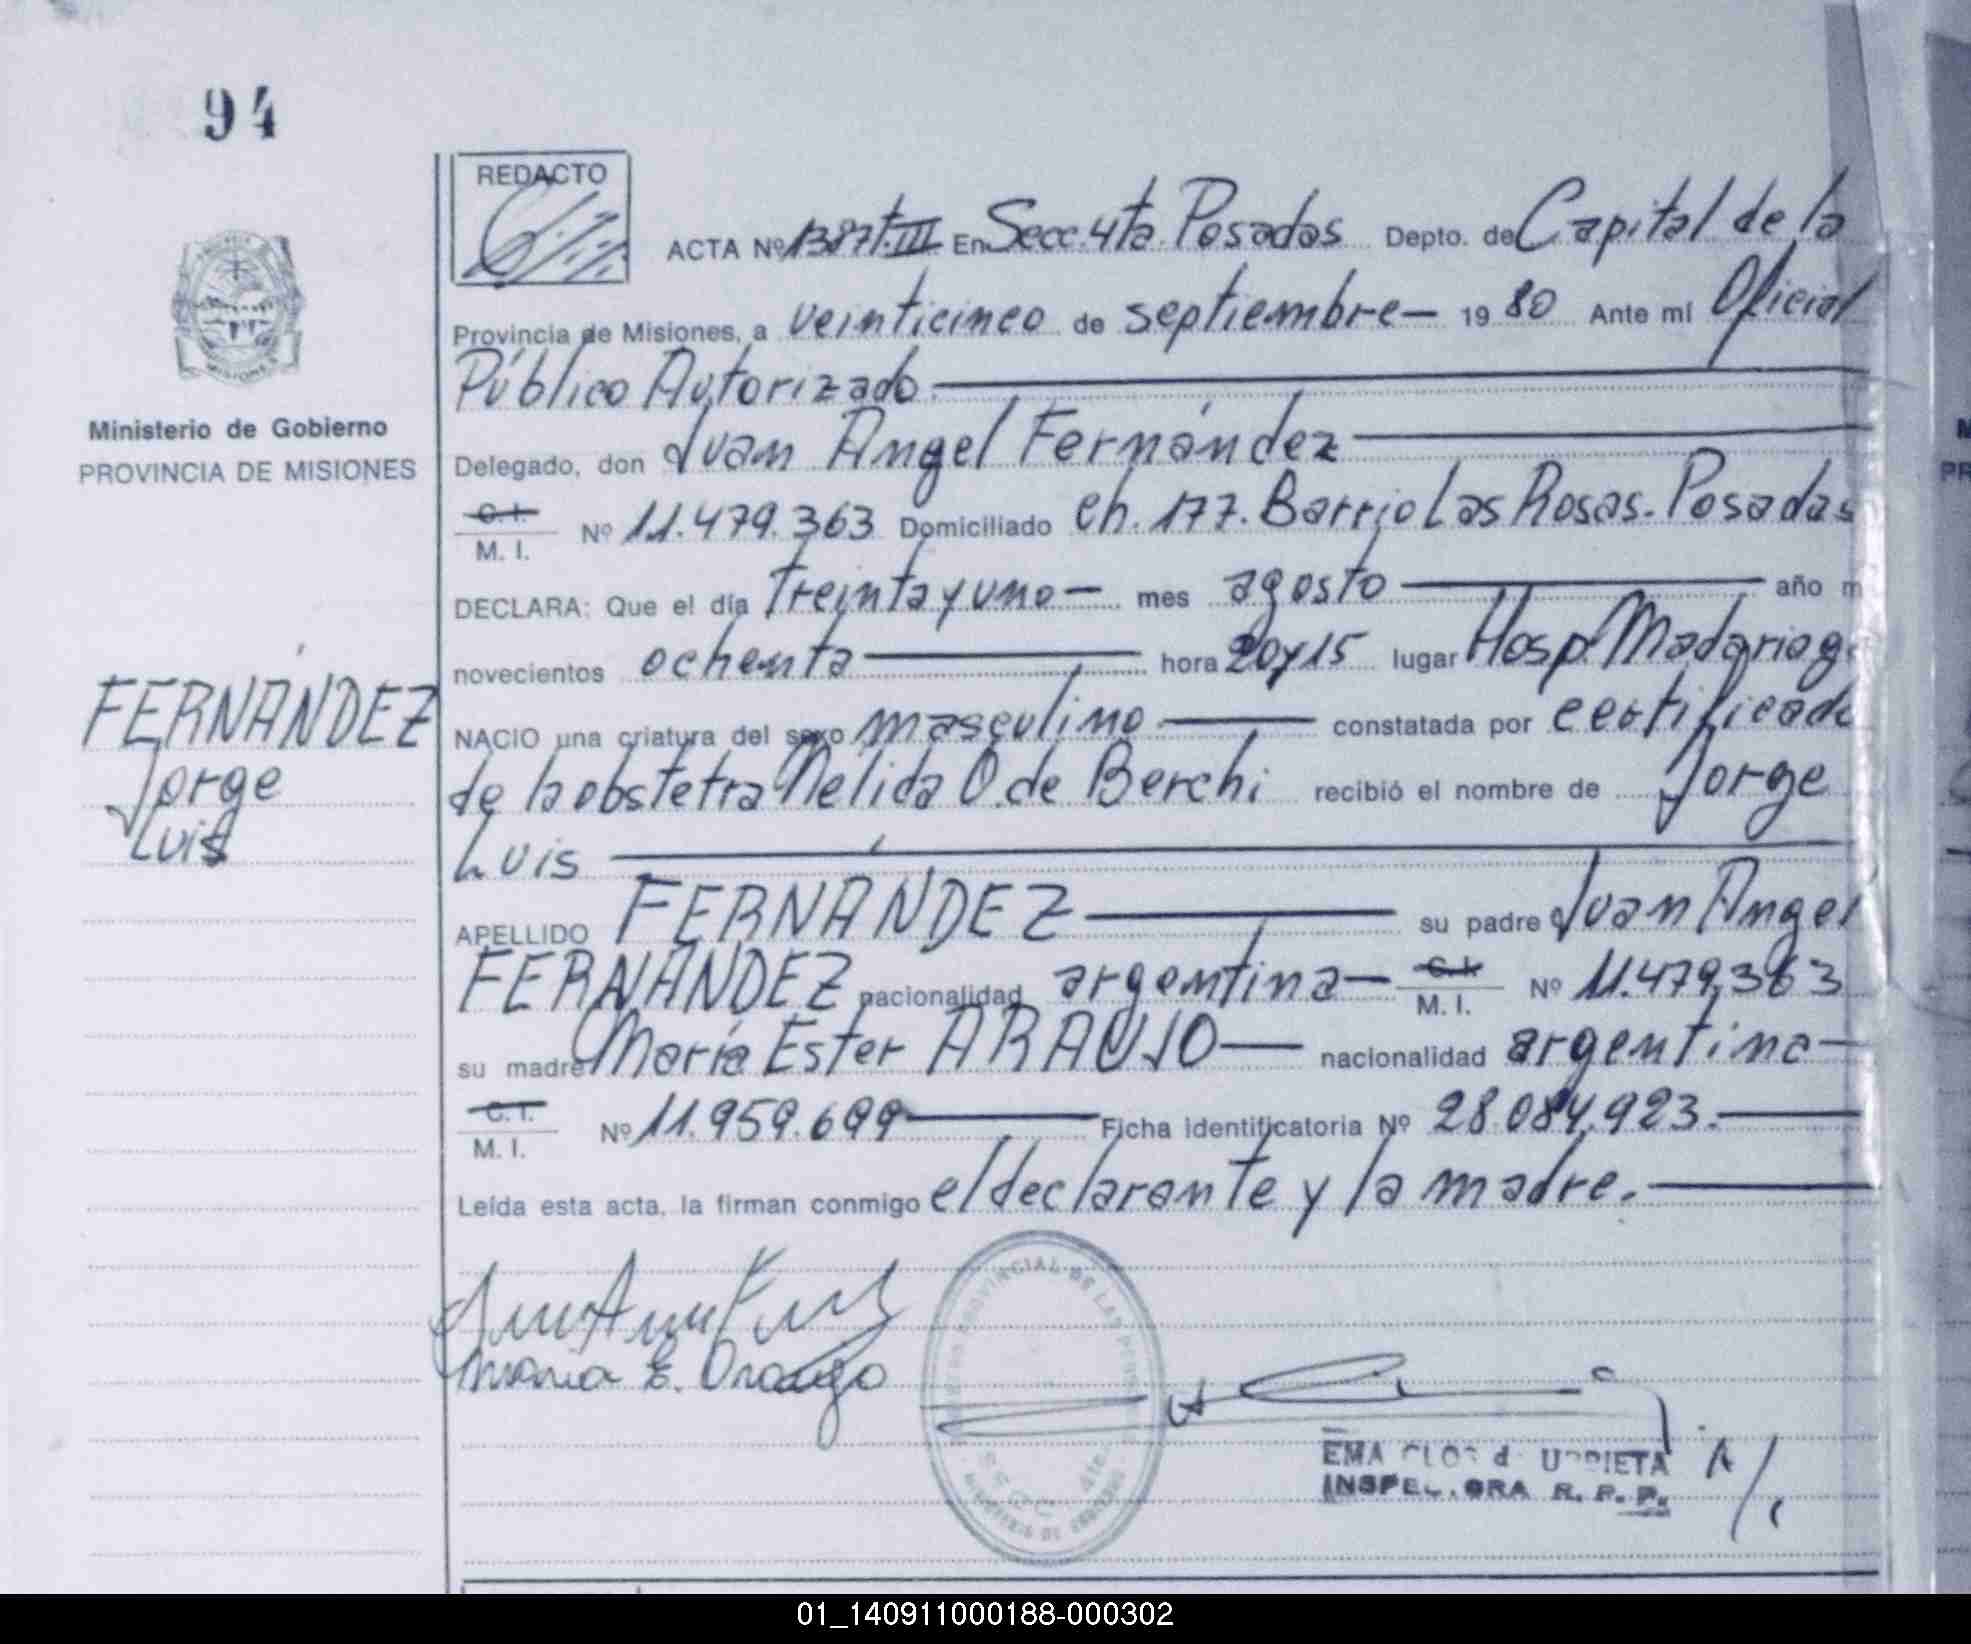 94
REDACTO
ACTA Nº 1387 t. III En Secc. 4ta. Posadas Depto. de Capital de la
Provincia de Misiones, a veinticinco de septiembre — 19 80 Ante mí Oficial
Público Autorizado
Ministerio de Gobierno
PROVINCIA DE MISIONES
Delegado, don Juan Angel Fernández
C. I.
M. I.
Nº 11.479.363 Domiciliado ch. 177. Barrio Las Rosas. Posadas
DECLARA: Que el día treinta y uno — mes agosto — año m
novecientos ochenta — hora 20 y 15 lugar Hosp. Madariaga
FERNÁNDEZ
Jorge
Luis
NACIO una criatura del sexo masculino — constatada por certificado
de la obstetra Nélida O. de Berchi recibió el nombre de Jorge
Luis
APELLIDO FERNÁNDEZ — su padre Juan Angel
FERNÁNDEZ nacionalidad argentina —
C. I.
M. I.
Nº 11.479.363
su madre María Ester ARAUJO — nacionalidad argentina —
C. I.
M. I.
Nº 11.959.699 — Ficha identificatoria Nº 28.084.923. —
Leída esta acta, la firman conmigo el declarante y la madre. —
Maria E. Araujo
PROVINCIAL DE LAS PERSONAS
SECC. 4ta.
MISIONES
EMA
INSPECTORA R. P. P.
01_140911000188-000302